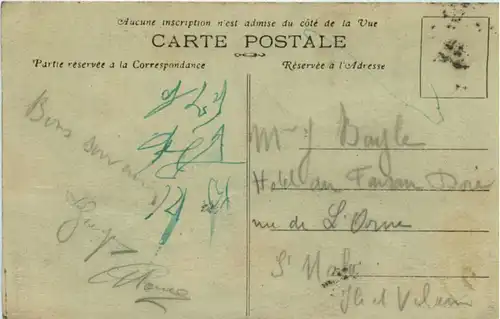 Aucune inscription n'est admise du côté de la Vue
CARTE POSTALE
Partie réservée à la Correspondance
Réservée à l'Adresse
Bons souvenirs
Mr J Bayle
Hotel du Faisan Doré
rue de L'Orme
St Malo
Ile et Vilaine